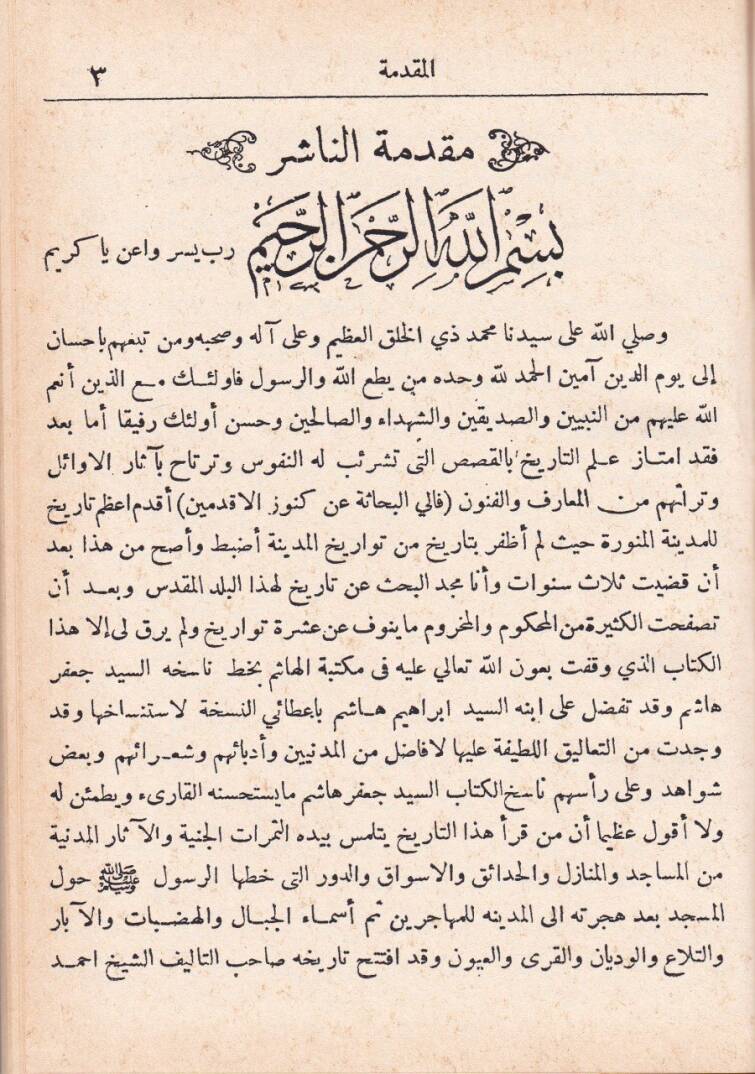 المقدمة ٣
مقدمة الناشر
بسم الله الرحمن الرحيم رب يسر واعن يا كريم
وصلي الله على سيدنا محمد ذي الخلق العظيم وعلى آله وصحبه ومن تبعهم باحسان
إلى يوم الدين آمين الحمد لله وحده من يطع الله والرسول فاولئك مع الذين أنعم
الله عليهم من النبيين والصديقين والشهداء والصالحين وحسن أولئك رفيقا أما بعد
فقد امتاز علم التاريخ بالقصص التى تشرئب له النفوس وترتاح بآثار الاوائل
وتراثهم من المعارف والفنون (فالي البحاثة عن كنوز الاقدمين) أقدم اعظم تاريخ
للمدينة المنورة حيث لم أظفر بتاريخ من تواريخ المدينة أضبط وأصح من هذا بعد
أن قضيت ثلاث سنوات وأنا مجد البحث عن تاريخ لهذا البلد المقدس وبعد أن
تصفحت الكثيرة من المحكوم والمخروم ماينوف عن عشرة تواريخ ولم يرق لى إلا هذا
الكتاب الذي وقفت بعون الله تعالي عليه فى مكتبة الهاشم بخط ناسخه السيد جعفر
هاشم وقد تفضل على ابنه السيد ابراهيم هاشم باعطائي النسخة لاستنساخها وقد
وجدت من التعاليق اللطيفة عليها لافاضل من المدنيين وأدبائهم وشعرائهم وبعض
شواهد وعلى رأسهم ناسخ الكتاب السيد جعفر هاشم مايستحسنه القارىء ويطمئن له
ولا أقول عظيما أن من قرأ هذا التاريخ يتلمس بيده الثمرات الجنية والآثار المدنية
من المساجد والمنازل والحدائق والاسواق والدور التى خطها الرسول ﷺ حول
المسجد بعد هجرته الى المدينه للمهاجرين ثم أسماء الجبال والهضبات والآبار
والتلاع والوديان والقرى والعيون وقد افتتح تاريخه صاحب التاليف الشيخ احمد